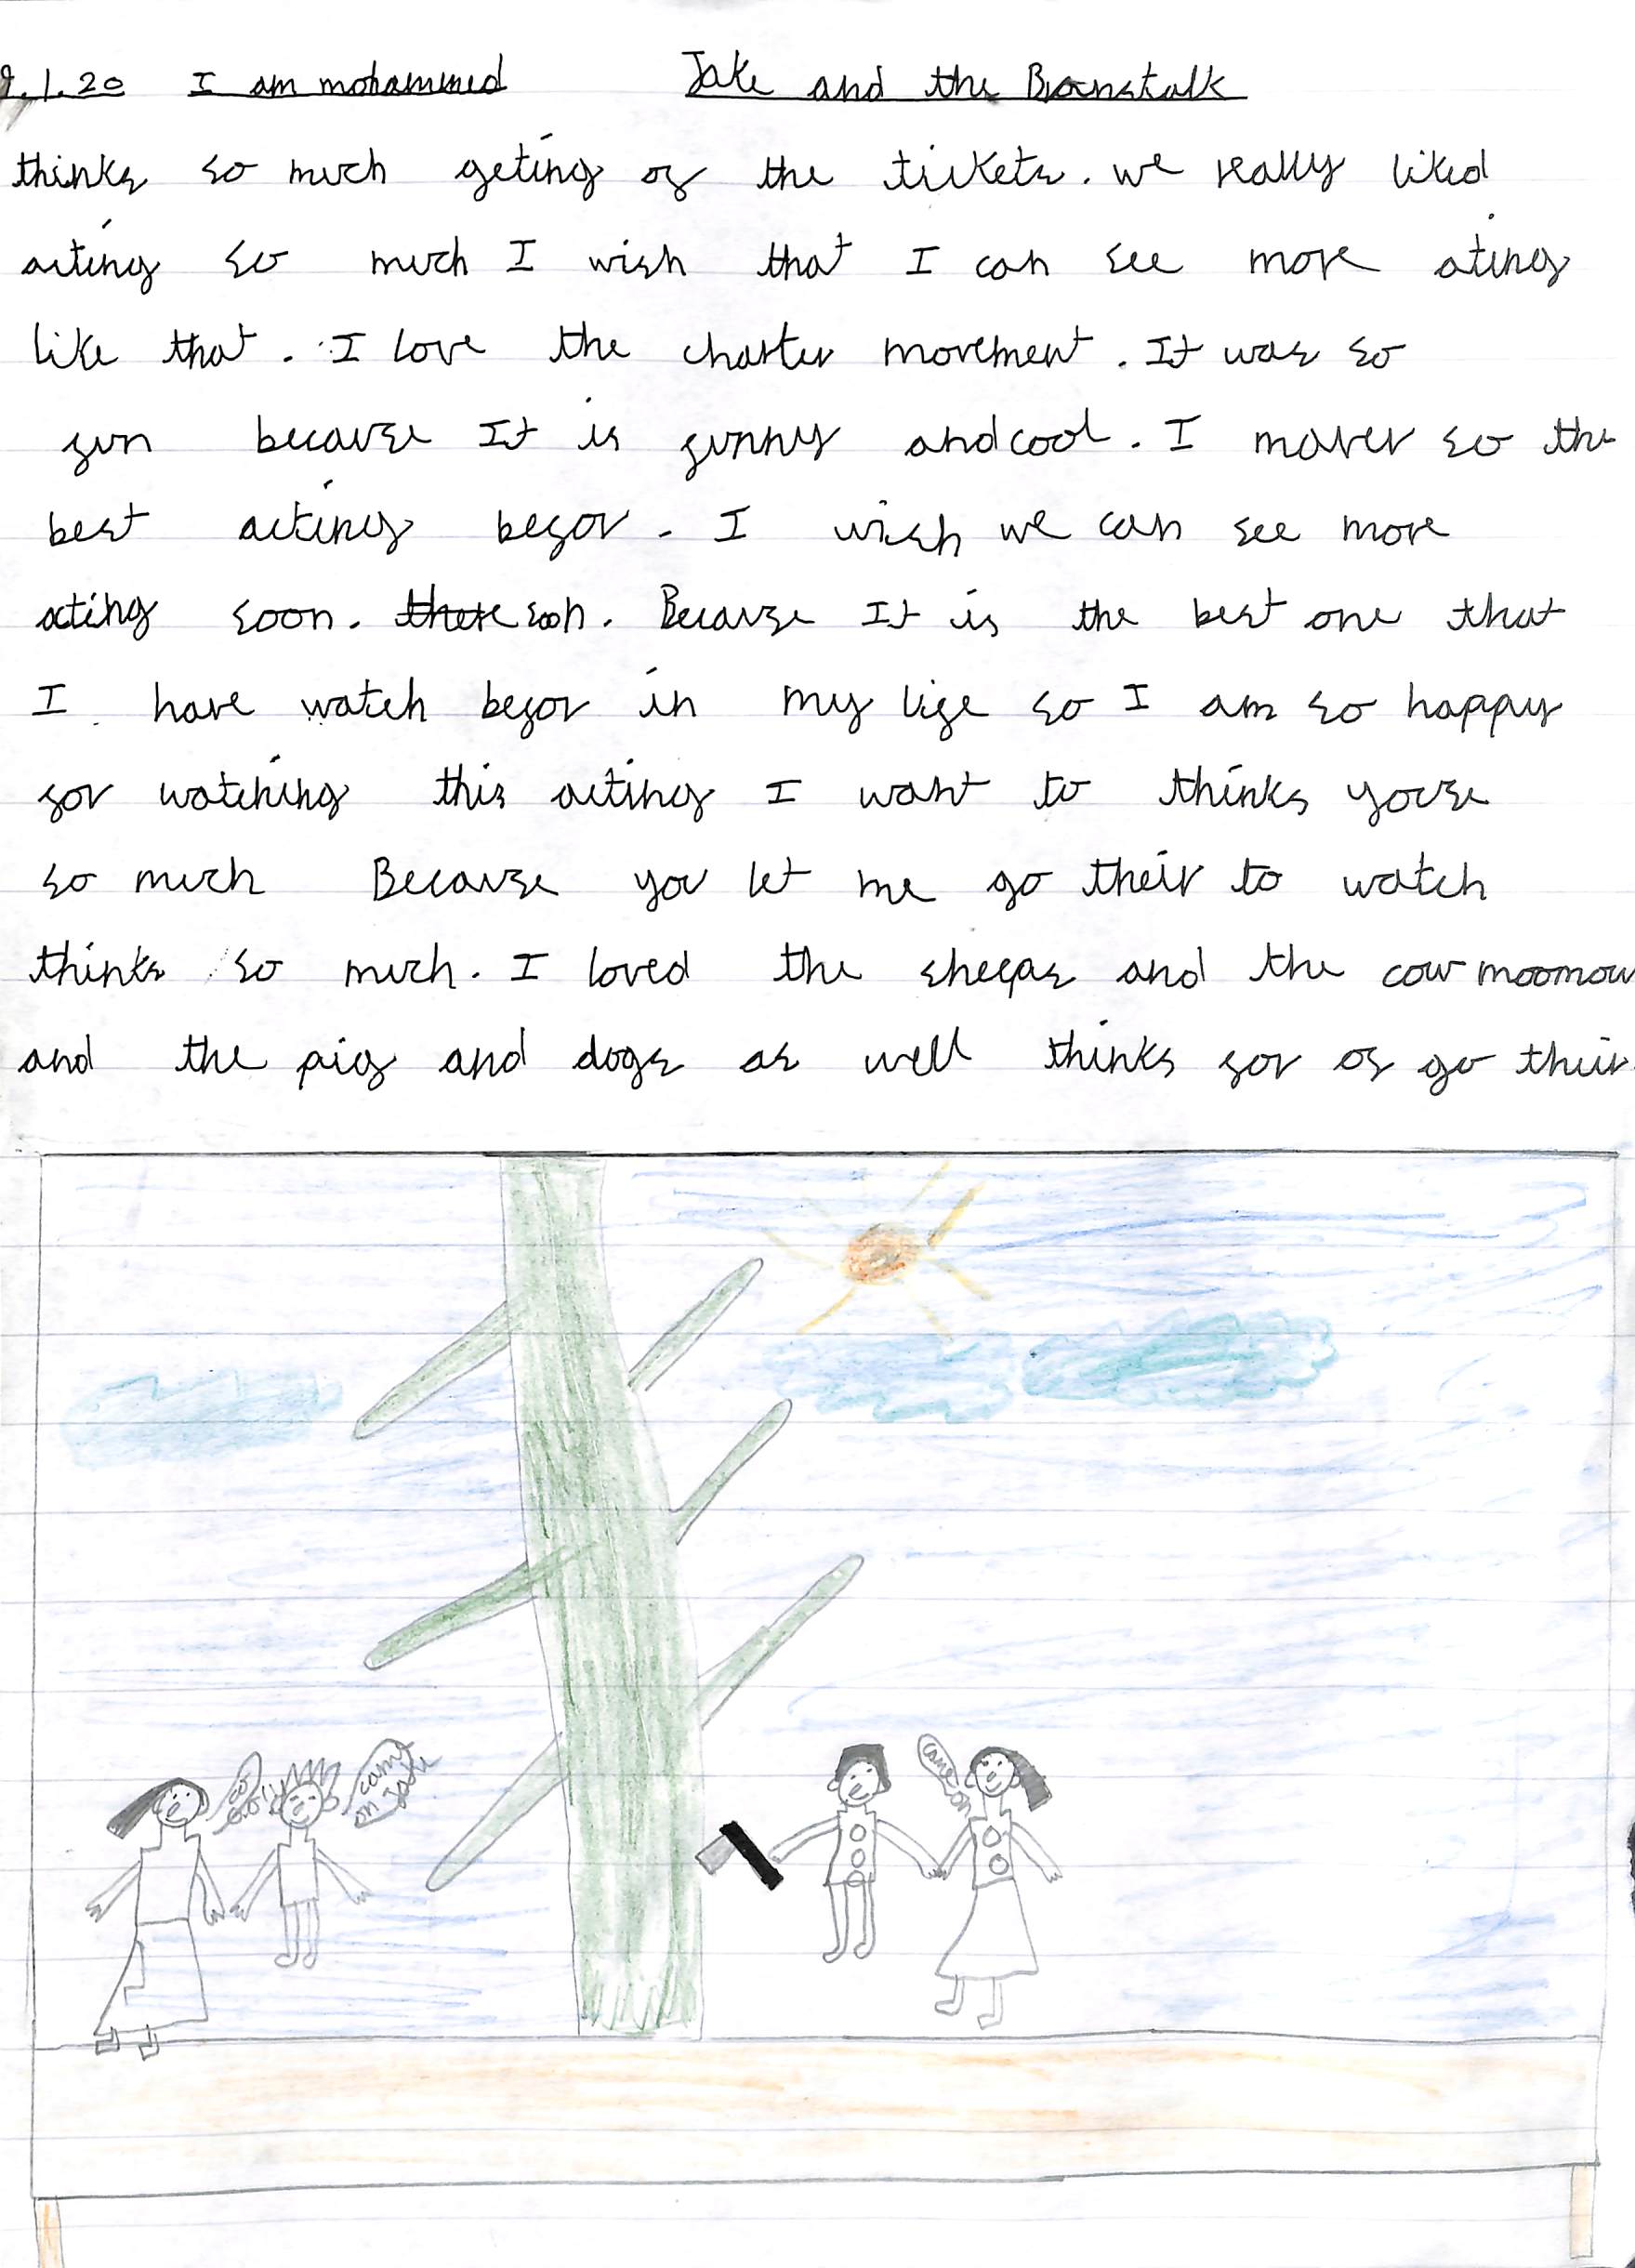 9.1.20 I am mohammed Jake and the Beanstalk
thinks so much geting of the tickets. we really liked
acting so much I wish that I can see more ating
like that. I love the charter movement. It was so
fun because It is funny and cool. I mover so the
best acting befor. I wish we can see more
acting soon. there soon. Because It is the best one that
I have watch befor in my life so I am so happy
for watching this acting I want to thinks youse
so much Because you let me go their to watch
thinks so much. I loved the sheeps and the cow moomow
and the pig and dogs as well thinks for of go their
cam
on Jake
came
on